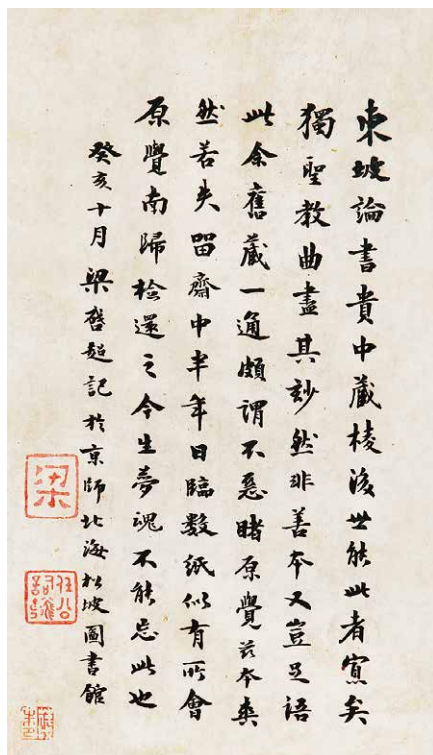 東坡論書貴中藏棱後世能此者寘矣
獨聖教曲盡其妙然非善本又豈足語
此余舊藏一通頗謂不惡睹原覺茲本爽
然若失留齋中半年日臨數紙似有所會
原覺南歸檢還之今生夢魂不能忘此也
癸亥十月梁啓超記於京師北海松坡圖書館
梁
任公